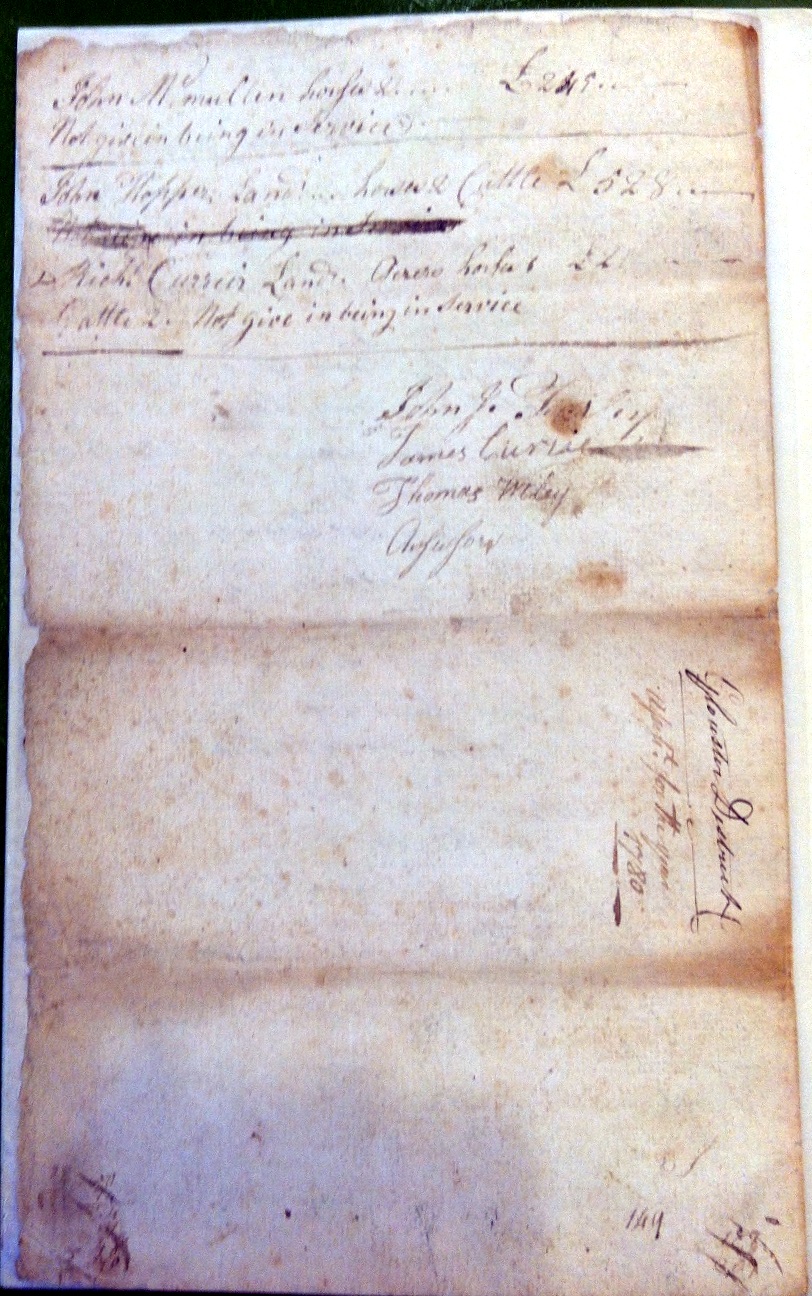 John McMullen horses 2 £245
Not give in being in Service
John Hopper Land horses 2 Cattle £528
Not give in being in Service
Richd Currier Land Acres horses £2
Cattle 2 Not give in being in Service
John J.
James Currie
Thomas Wiley
Assessors
District
for the year
1780
149